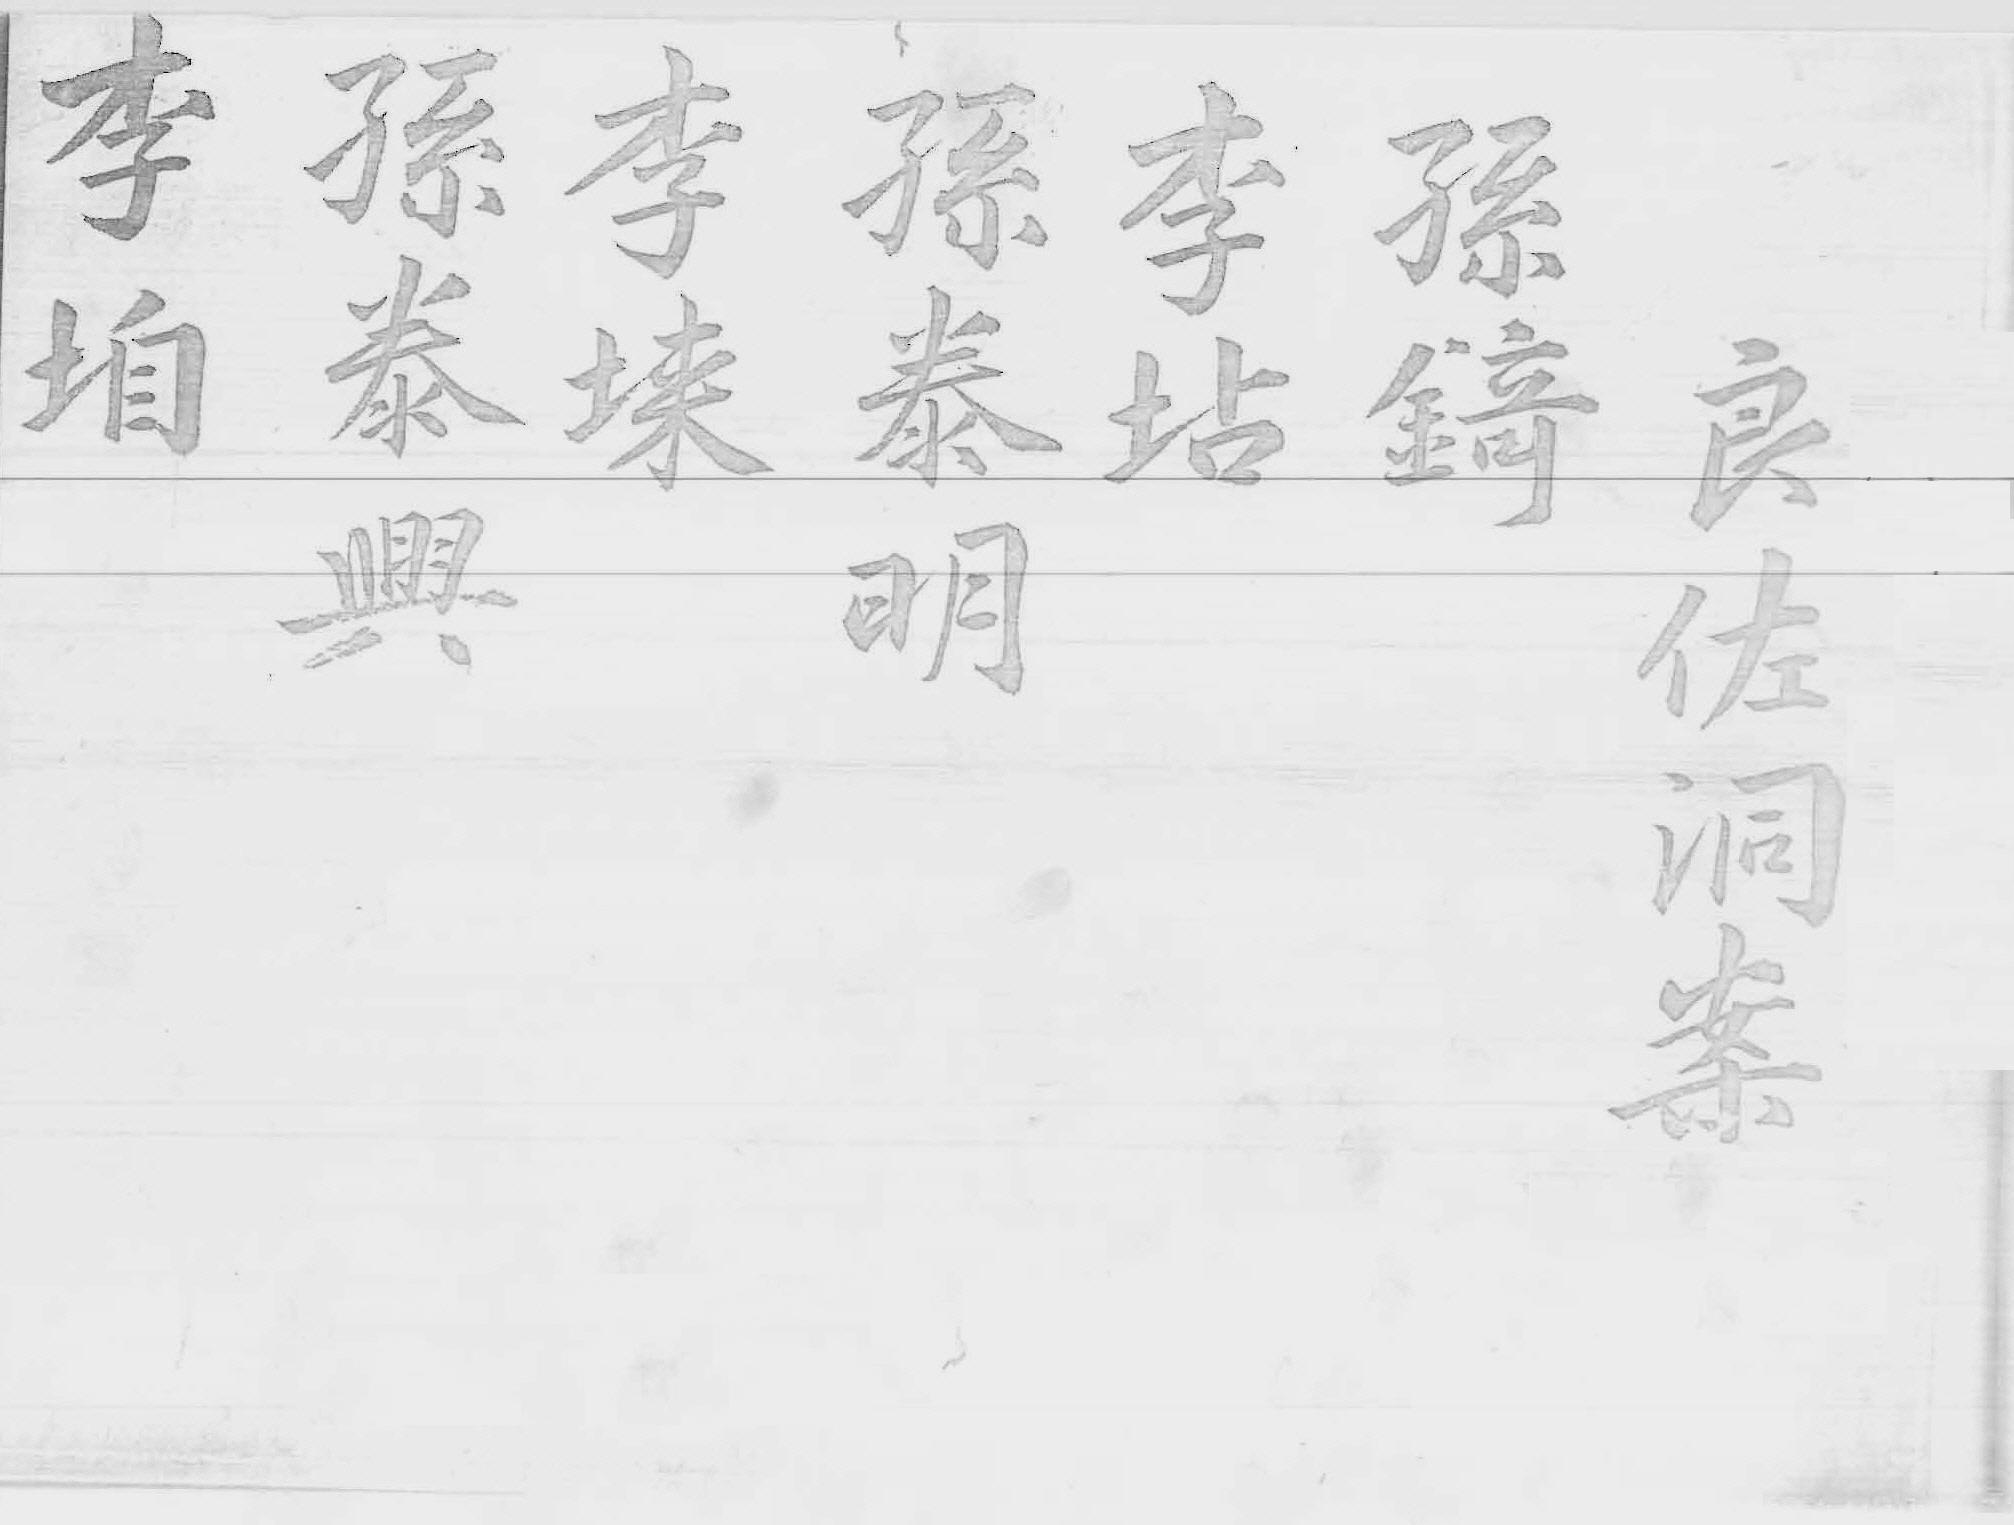 良佐洞案
孫錡
李坫
孫泰明
李埰
孫泰興
李垍